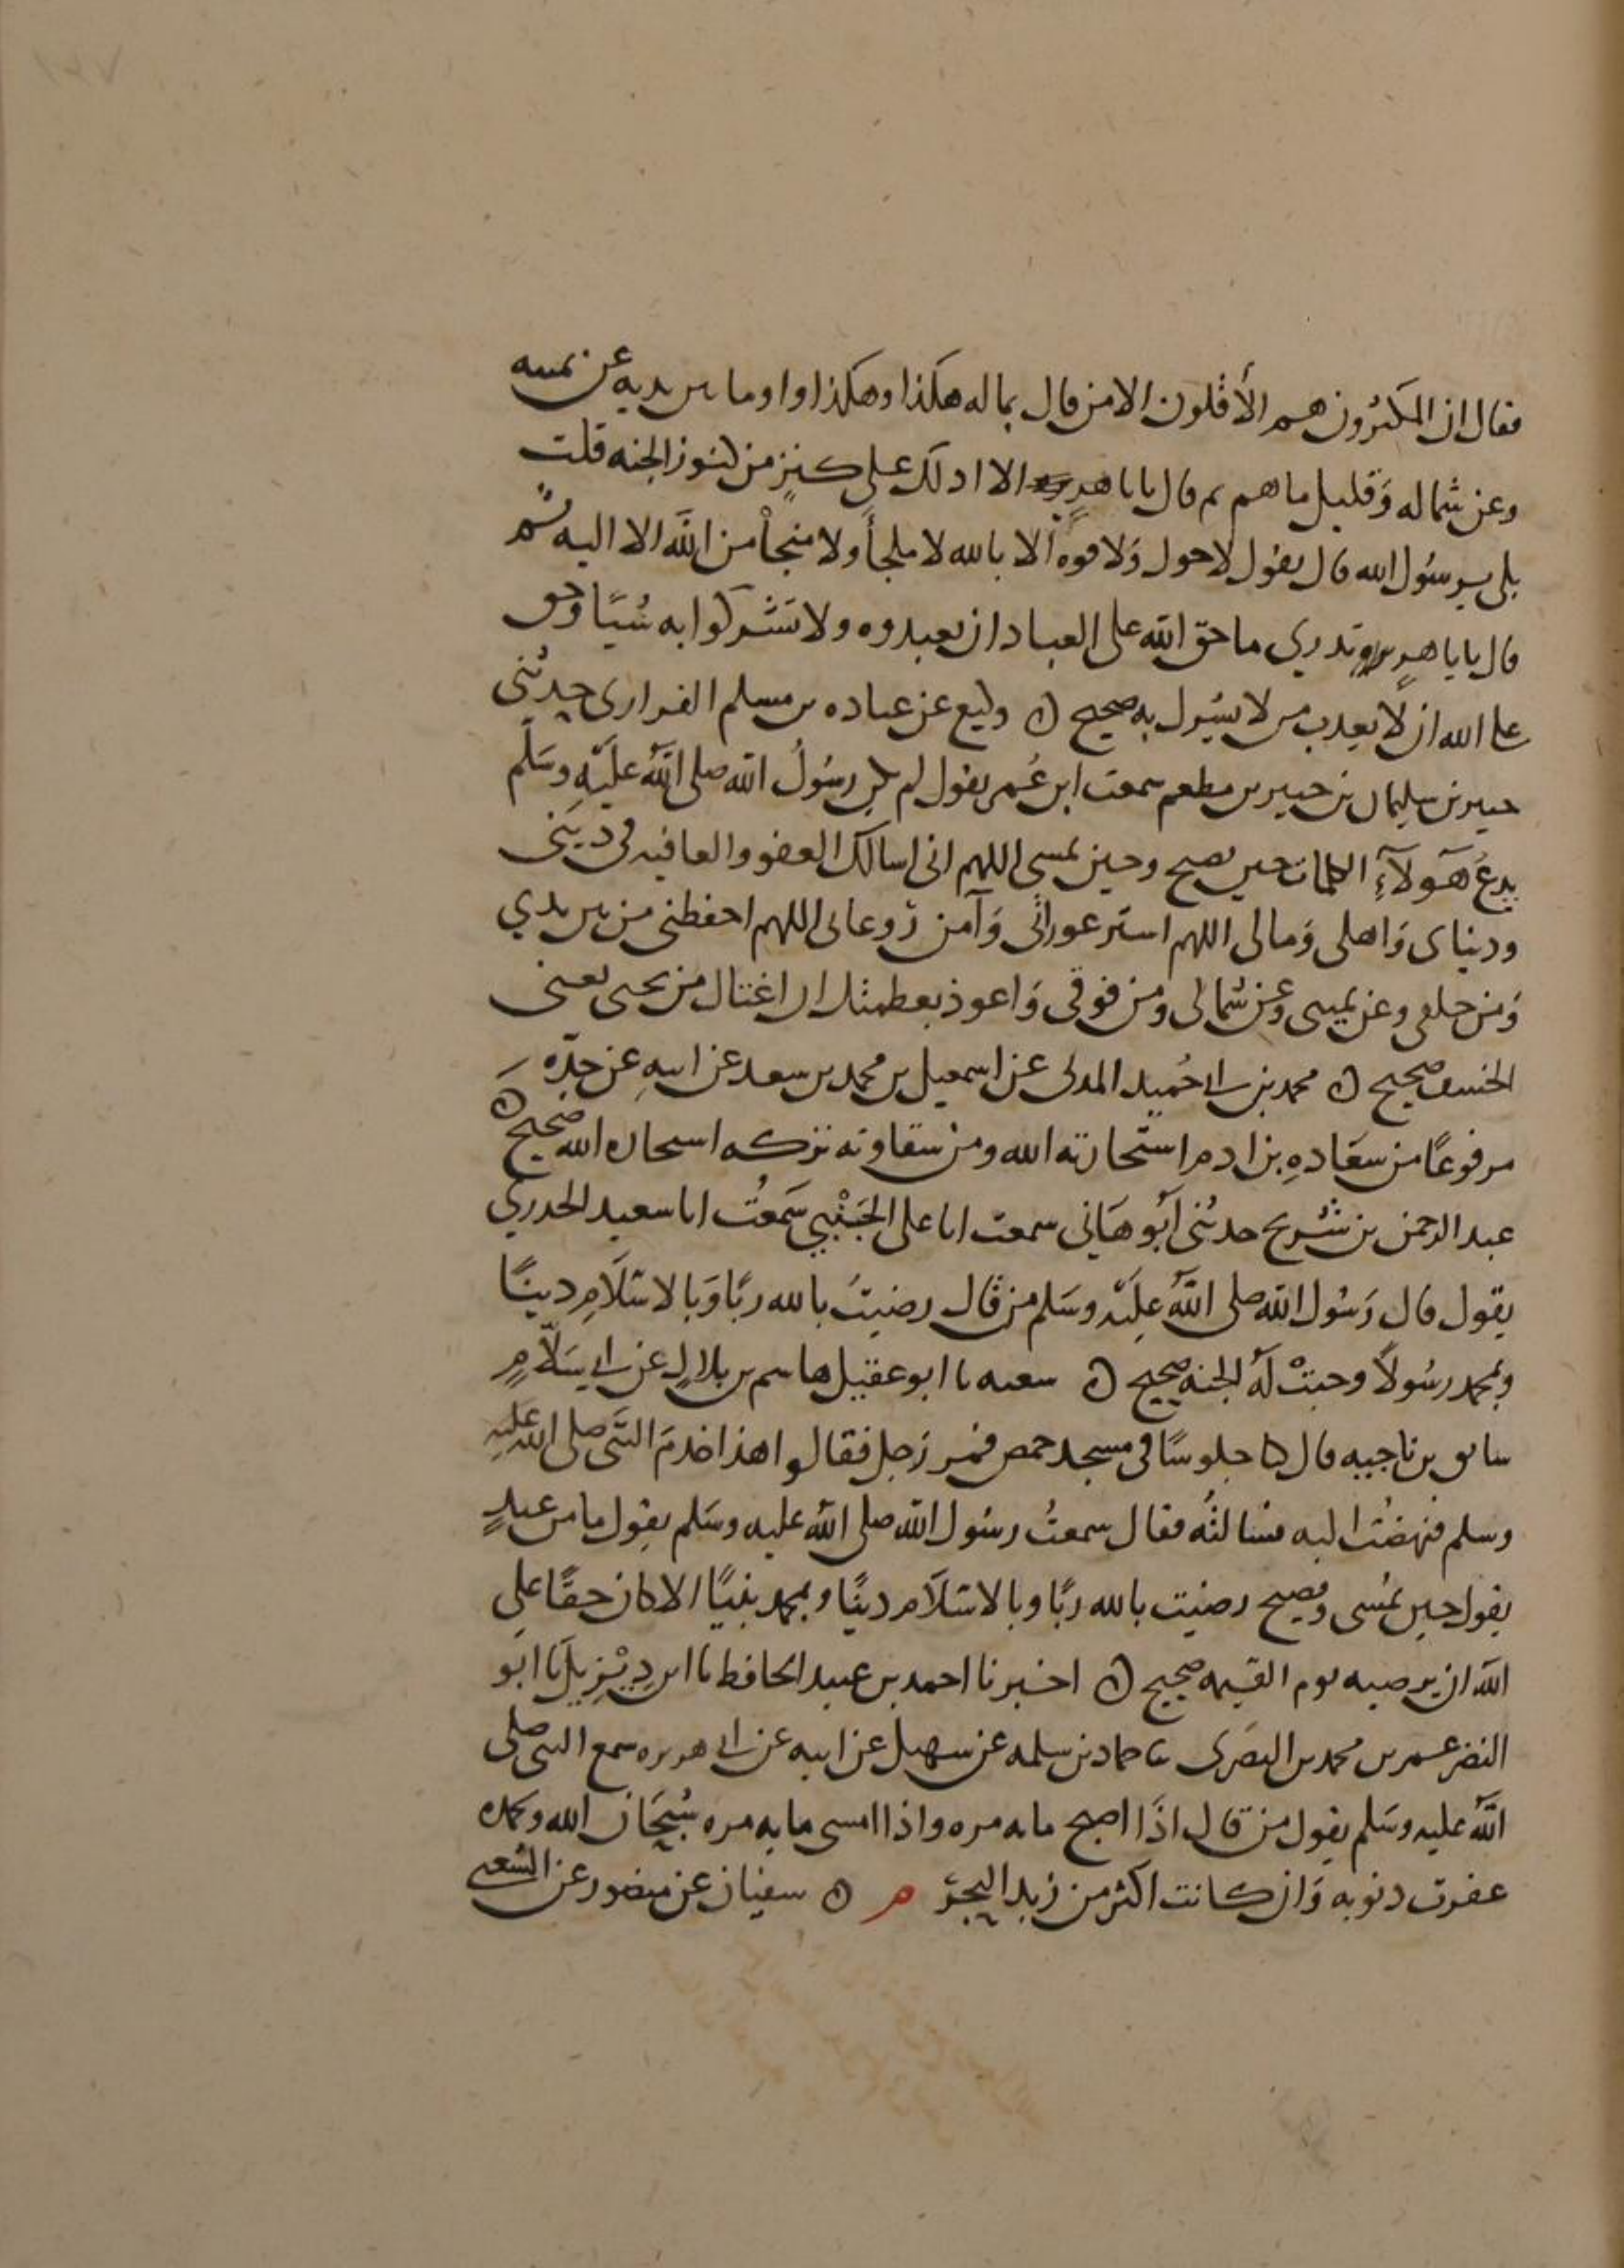 فقال ان المكثرون هم الأقلون الا من قال بماله هكذا وهكذا واوما بين يديه عن يمينه
وعن شماله وقليل ما هم ثم قال يابا هر الا ادلك على كنز من كنوز الجنه قلت
بلى يرسول الله قال يقول لا حول ولا قوه الا بالله لا ملجأ ولا منجأ من الله الا اليه ثم
قال يابا هريره تدري ما حق الله على العباد ان يعبدوه ولا تشركوا به شيئا وحق
على الله ان لا يعذب من لا يشرك به صحيح ه وكيع عن عباده بن مسلم الفزارى حدثني
جبير بن سليمان بن جبير بن مطعم سمعت ابن عمر يقول لم يكن رسول الله صلى الله عليه وسلم
يدع هولآء الكلمات حين يصبح وحين يمسى اللهم انى اسالك العفو والعافيه فى دينى
ودنياى واهلى ومالى اللهم استر عوراتى وآمن روعاتى اللهم احفظنى من بين يدي
ومن خلفى وعن يمينى وعن شمالى ومن فوقى واعوذ بعظمتك ان اغتال من تحتى يعنى
الخسف صحيح ه محمد بن ابى حميد المدنى عن اسمعيل بن محمد بن سعد عن ابيه عن جده
مرفوعا من سعاده بن ادم استخارته الله ومن شقاوته تركه استخاره الله صحيح ه
عبد الرحمن بن شريح حدثنى ابو هانى سمعت ابا على الجنبي سمعت ابا سعيد الخدري
يقول قال رسول الله صلى الله عليه وسلم من قال رضيت بالله ربا وبالاسلام دينا
وبمحمد رسولا وجبت له الجنه صحيح ه شعبه نا ابو عقيل هاشم بن بلال عن ابى سلام
سابق بن ناجيه قال كنا جلوسا فى مسجد حمص فمر رجل فقالوا هذا خدم النبى صلى الله عليه
وسلم فنهضت اليه فسالته فقال سمعت رسول الله صلى الله عليه وسلم يقول ما من عبد
يقول حين يمسى ويصبح رضيت بالله ربا وبالاسلام دينا وبمحمد نبيا الا كان حقا على
الله ان يرضيه يوم القيمه صحيح ه اخبرنا احمد بن عبيد الحافظ نا ابن ديزيل نا ابو
النضر عمر بن محمد بن البصرى ثنا حماد بن سلمه عن سهيل عن ابيه عن ابى هريره سمع النبى صلى
الله عليه وسلم يقول من قال اذا اصبح مايه مره واذا امسى مايه مره سبحان الله وبحمده
غفرت ذنوبه وان كانت اكثر من زبد البحر م ه سفيان عن منصور عن الشعبى